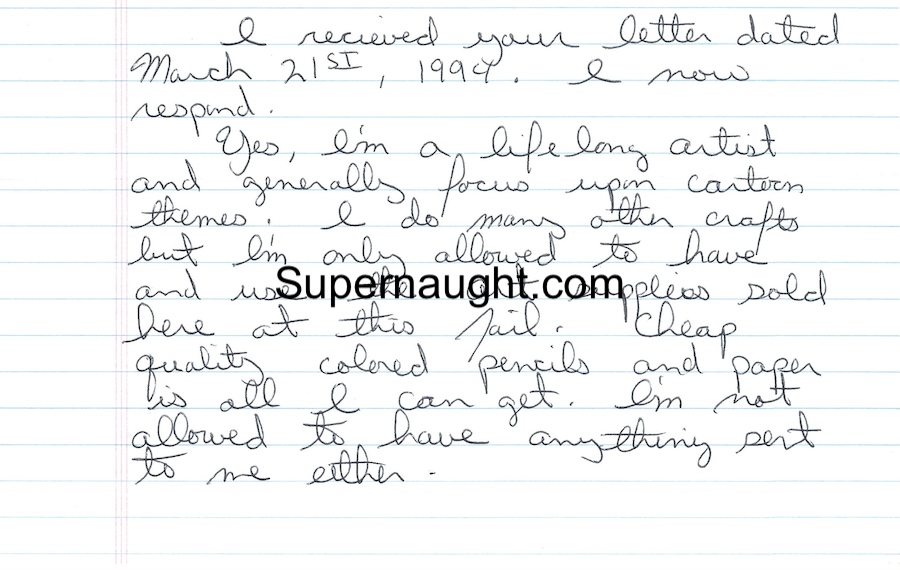 I recieved your letter dated
March 21ST, 1994. I now
respond.
Yes, I'm a lifelong artist
and generally focus upon cartoon
themes. I do many other crafts
but I'm only allowed to have
and use the art supplies sold
Supernaught.com
here at this jail. Cheap
quality colored pencils and paper
is all I can get. I'm not
allowed to have anything sent
to me either.